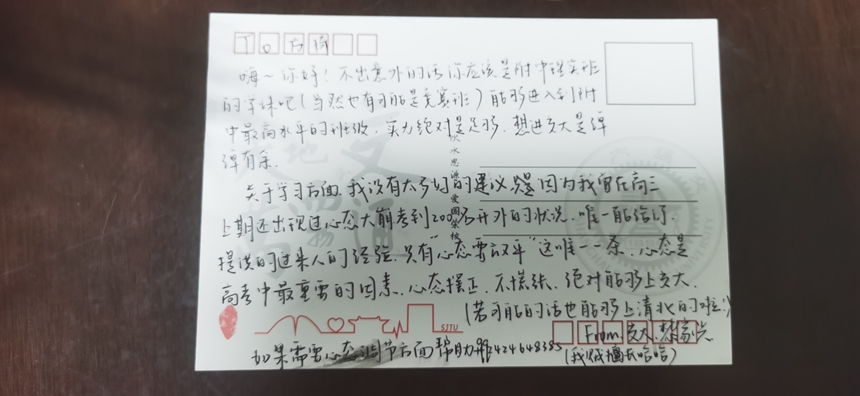 To 方
嗨~你好！不出意外的话你应该是附中理实班
的学妹吧（当然也有可能是竞赛班）能够进入到附
中最高水平的班级，实力绝对是足够，想进交大是绰
绰有余.
饮水思源 爱国荣校
关于学习方面，我没有太多好的建议，因为我曾在高三
上期还出现过心态大崩考到200名开外的状况.唯一能给你
提供的过来人的经验只有"心态要放平"这唯一一条,心态是
高考中最重要的因素.心态摆正,不慌张,绝对能够上交大.
(若可能的话也能够上清北的啦:)
SJTU
From 交大.
如果需要心态调节方面帮助 424648385
(我贼擅长哈哈)